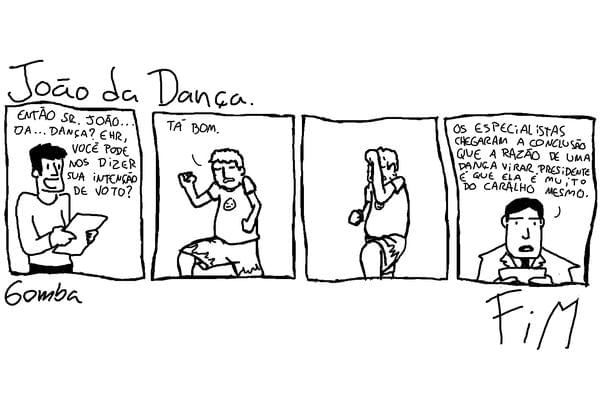 João da Dança.
ENTÃO SR. JOÃO...
DA... DANÇA? EHR,
VOCÊ PODE
NOS DIZER
SUA INTENÇÃO
DE VOTO?
TÁ BOM.
OS ESPECIALISTAS
CHEGARAM A CONCLUSÃO
QUE A RAZÃO DE UMA
DANÇA VIRAR PRESIDENTE
É QUE ELA É MUITO
DO CARALHO MESMO.
Gomba
FiM